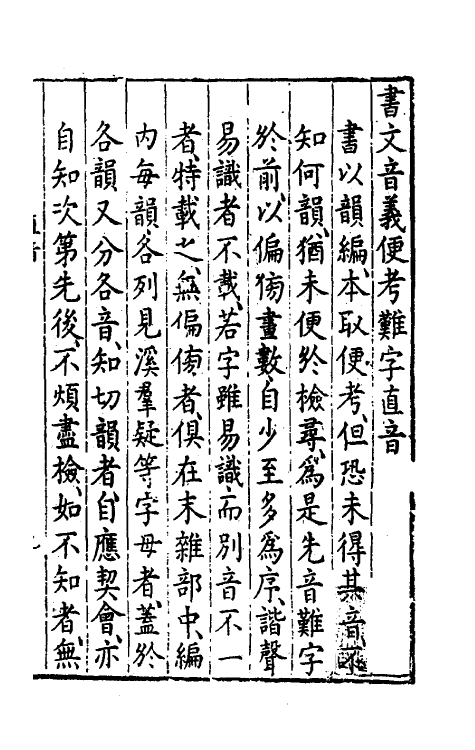 書文音義便考難字直音
書以韻編、本取便考、但恐未得其音不
知何韻、猶未便於檢尋、爲是先音難字
於前、以偏傍畫數、自少至多爲序、諧聲
易識者不載、若字雖易識、而別音不一
者、特載之、無偏傍者、俱在末雜部中、編
內每韻各列見溪羣疑等字母者、蓋於
各韻又分各音、知切韻者、自應契會、亦
自知次第先後、不煩盡檢、如不知者、無
直音